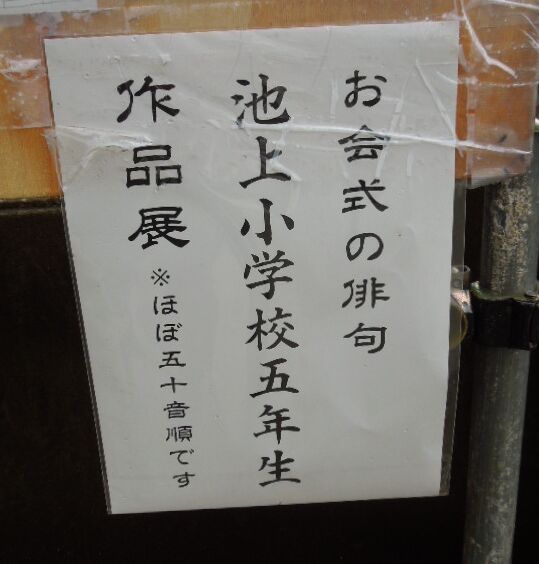 お会式の俳句
池上小学校五年生
作品展 ※ほぼ五十音順です